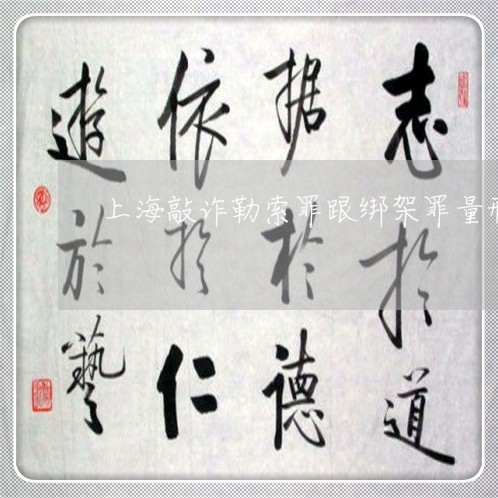 志扵道
据扵德
依扵仁
遊於藝
上海敲诈勒索罪跟绑架罪量